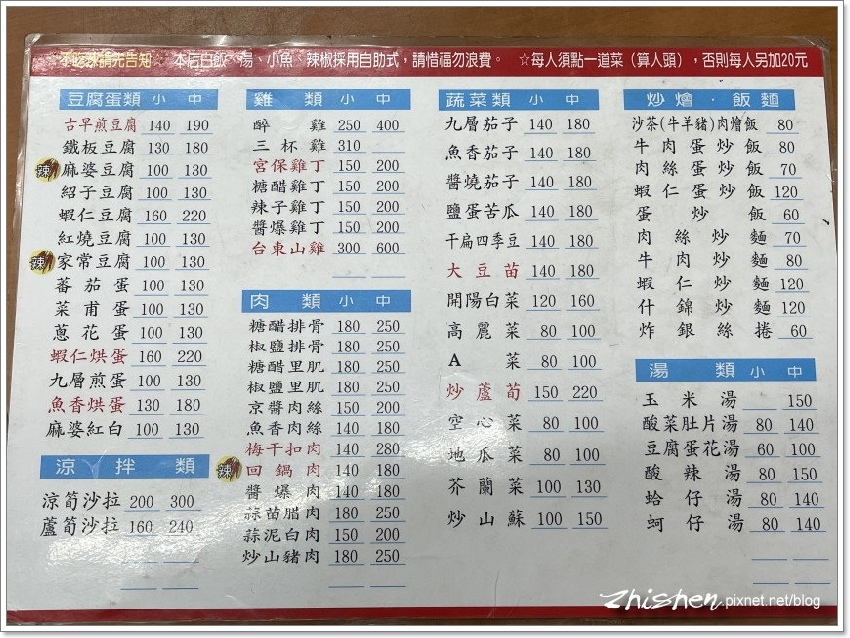 ☆不吃辣請先告知☆ 本店白飯、湯、小魚、辣椒採用自助式，請惜福勿浪費。 ☆每人須點一道菜（算人頭），否則每人另加20元
豆腐蛋類 小 中
古早煎豆腐 140 190
鐵板豆腐 130 180
辣 麻婆豆腐 100 130
紹子豆腐 100 130
蝦仁豆腐 160 220
紅燒豆腐 100 130
辣 家常豆腐 100 130
蕃茄蛋 100 130
菜甫蛋 100 130
蔥花蛋 100 130
蝦仁烘蛋 160 220
九層煎蛋 100 130
魚香烘蛋 130 180
麻婆紅白 100 130
涼拌類
涼筍沙拉 200 300
蘆筍沙拉 160 240
雞類 小 中
醉雞 250 400
三杯雞 310
宮保雞丁 150 200
糖醋雞丁 150 200
辣子雞丁 150 200
醬爆雞丁 150 200
台東山雞 300 600
肉類 小 中
糖醋排骨 180 250
椒鹽排骨 180 250
糖醋里肌 180 250
椒鹽里肌 180 250
京醬肉絲 150 200
魚香肉絲 140 180
梅干扣肉 140 280
辣 回鍋肉 140 180
醬爆肉 140 180
蒜苗腊肉 180 250
蒜泥白肉 150 200
炒山豬肉 180 250
蔬菜類 小 中
九層茄子 140 180
魚香茄子 140 180
醬燒茄子 140 180
鹽蛋苦瓜 140 180
干扁四季豆 140 180
大豆苗 140 180
開陽白菜 120 160
高麗菜 80 100
A菜 80 100
炒蘆筍 150 220
空心菜 80 100
地瓜菜 80 100
芥蘭菜 100 130
炒山蘇 100 150
炒燴．飯麵
沙茶(牛羊豬)肉燴飯 80
牛肉蛋炒飯 80
肉絲蛋炒飯 70
蝦仁蛋炒飯 120
蛋炒飯 60
肉絲炒麵 70
牛肉炒麵 80
蝦仁炒麵 120
什錦炒麵 120
炸銀絲捲 60
湯類 小 中
玉米湯 150
酸菜肚片湯 80 140
豆腐蛋花湯 60 100
酸辣湯 80 150
蛤仔湯 80 140
蚵仔湯 80 140
zhishen.pixnet.net/blog